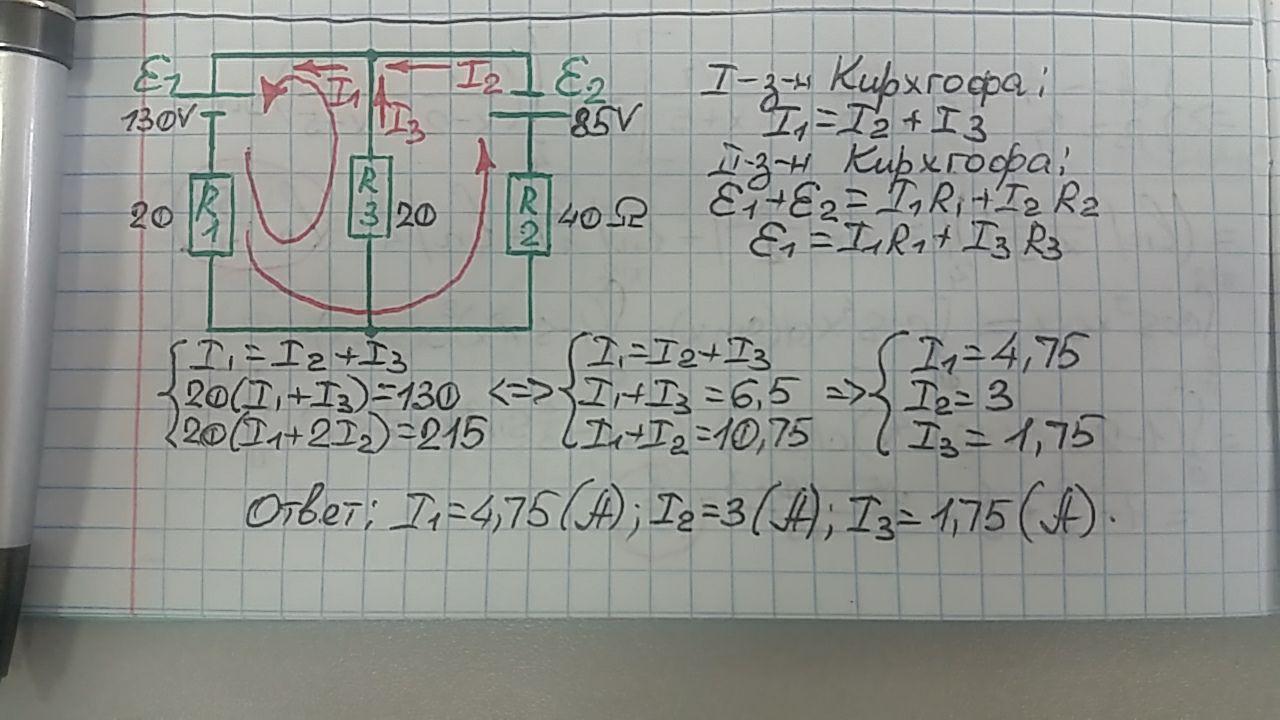 ε1 I1 I2 ε2
130V I3 85V
20 R1 R3 20 R2 40Ω
I-з-н Кирхгофа:
I1=I2+I3
II-з-н Кирхгофа:
ε1+ε2=I1R1+I2R2
ε1=I1R1+I3R3
{I1=I2+I3
20(I1+I3)=130
20(I1+2I2)=215
<=>
{I1=I2+I3
I1+I3=6,5
I1+I2=10,75
=>
{I1=4,75
I2=3
I3=1,75
Ответ: I1=4,75(A); I2=3(A); I3=1,75(A).